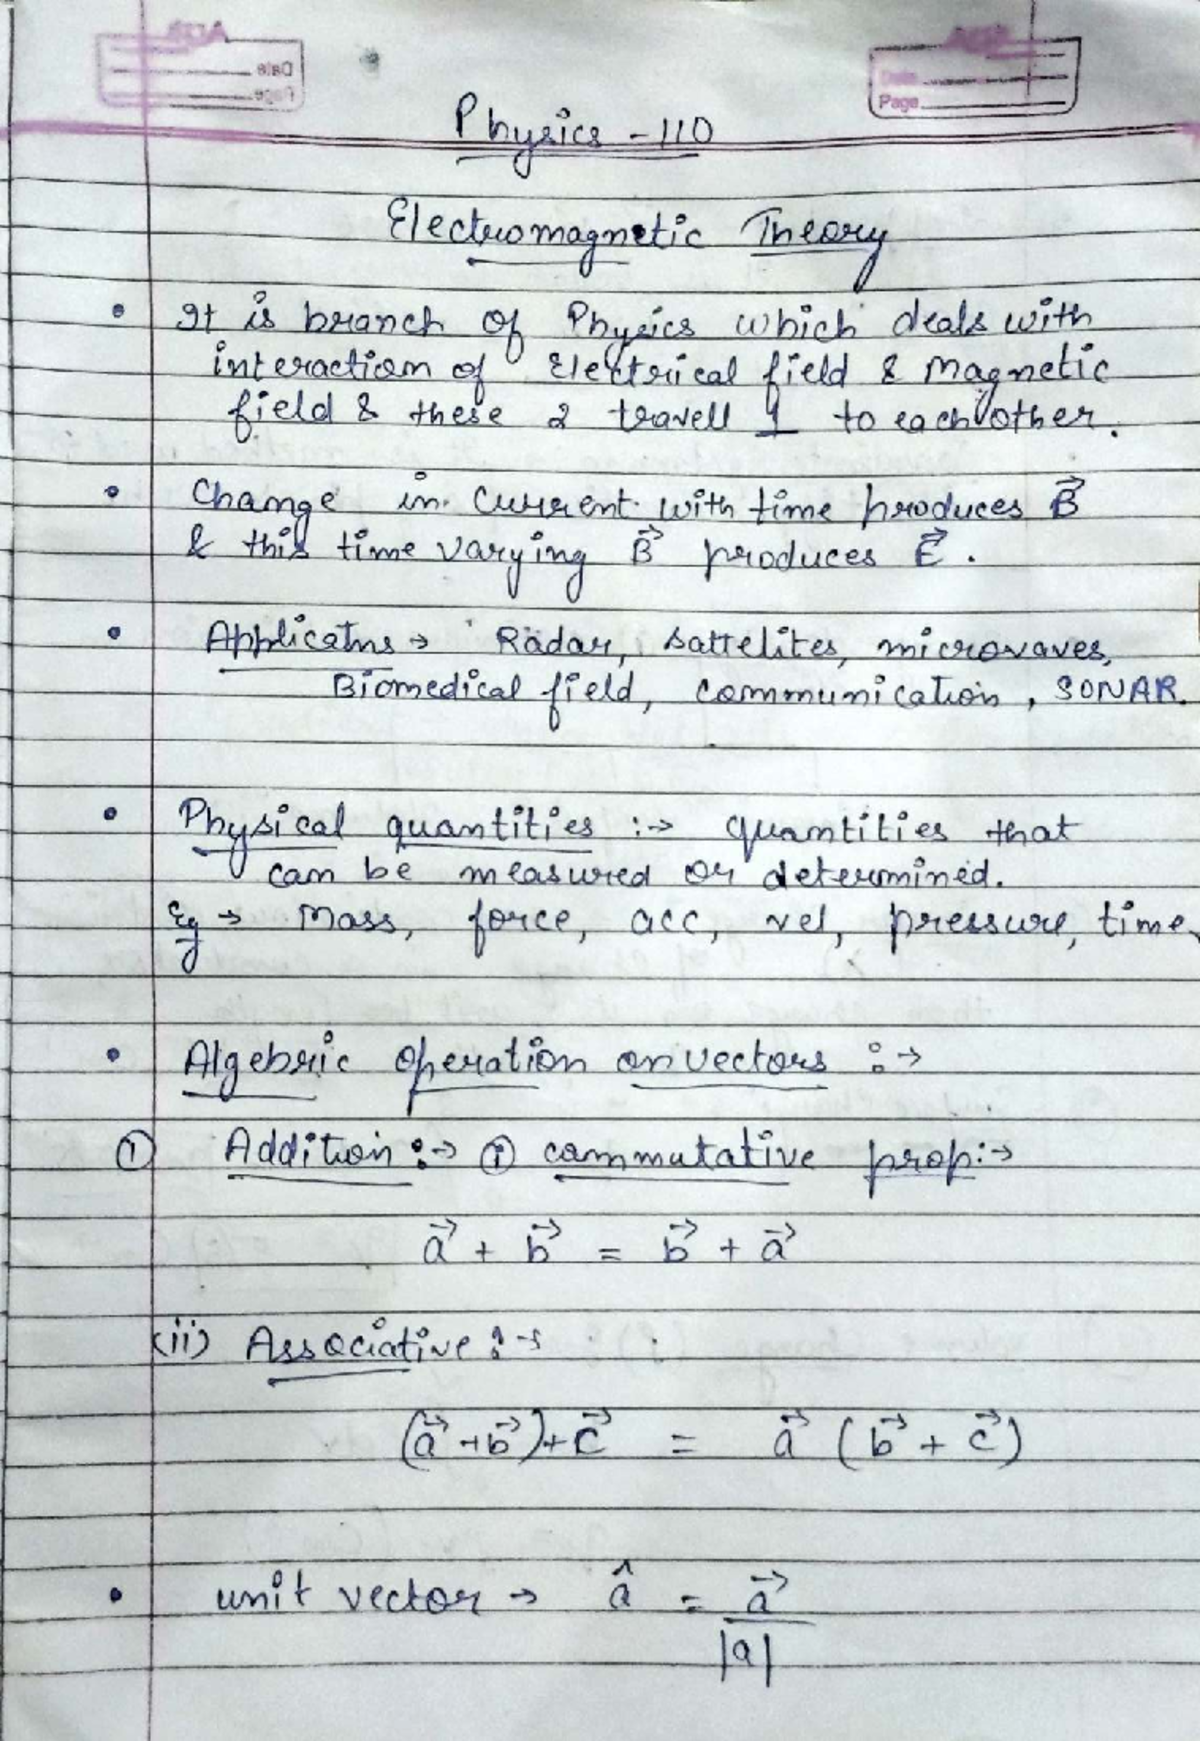 Date
Page
Date
Page
Physics - 110
Electromagnetic Theory
• It is branch of Physics which deals with
interaction of Electrical field & Magnetic
field & these 2 travell ⊥ to each other.
• Change in current with time produces B⃗
& this time varying B⃗ produces E⃗.
• Applicatns → Radar, sattelites, microwaves,
Biomedical field, communication, SONAR.
• Physical quantities :→ quantities that
can be measured or determined.
Eg → Mass, force, acc, vel, pressure, time.
• Algebric operation on vectors :→
① Addition :→ ⓘ commutative prop :→
a⃗ + b⃗ = b⃗ + a⃗
(ii) Associative :→
(a⃗ + b⃗) + c⃗ = a⃗ (b⃗ + c⃗)
• unit vector → â = a⃗
|a|